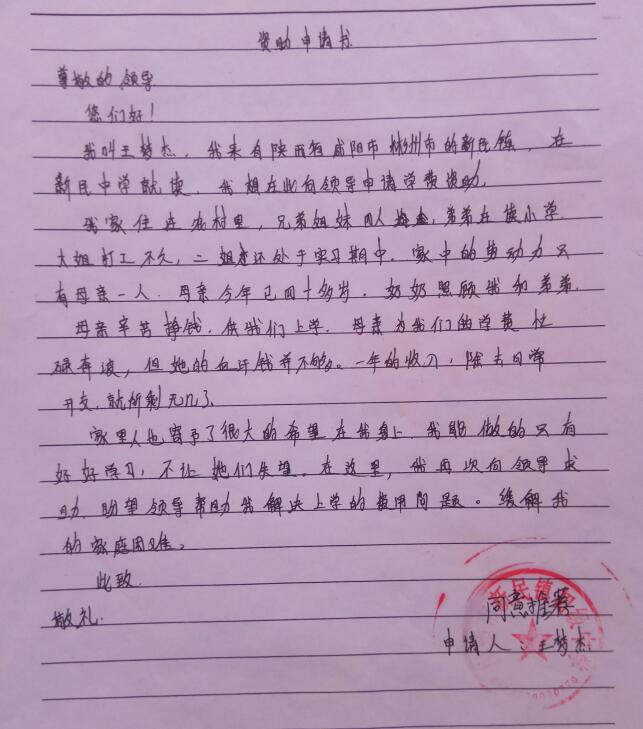 资助申请书
尊敬的领导
您们好！
我叫王梦杰，我来自陕西省咸阳市彬州市的新民镇，在
新民中学就读，我想在此向领导申请学费资助。
我家住在农村里，兄弟姐妹四人，弟弟在读小学，
大姐打工不久，二姐还处于实习期中。家中的劳动力只
有母亲一人，母亲今年已四十多岁，奶奶照顾我和弟弟，
母亲辛苦挣钱，供我们上学，母亲为我们的学费忙
碌奔波，但她的血汗钱并不够。一年的收入，除去日常
开支，就所剩无几了。
家里人也寄予了很大的希望在我身上，我能做的只有
好好学习，不让她们失望，在这里，我再次向领导求
助，盼望领导帮助我解决上学的费用问题。缓解我
的家庭困难。
此致
敬礼
同意推荐
申请人：王梦杰
新民镇